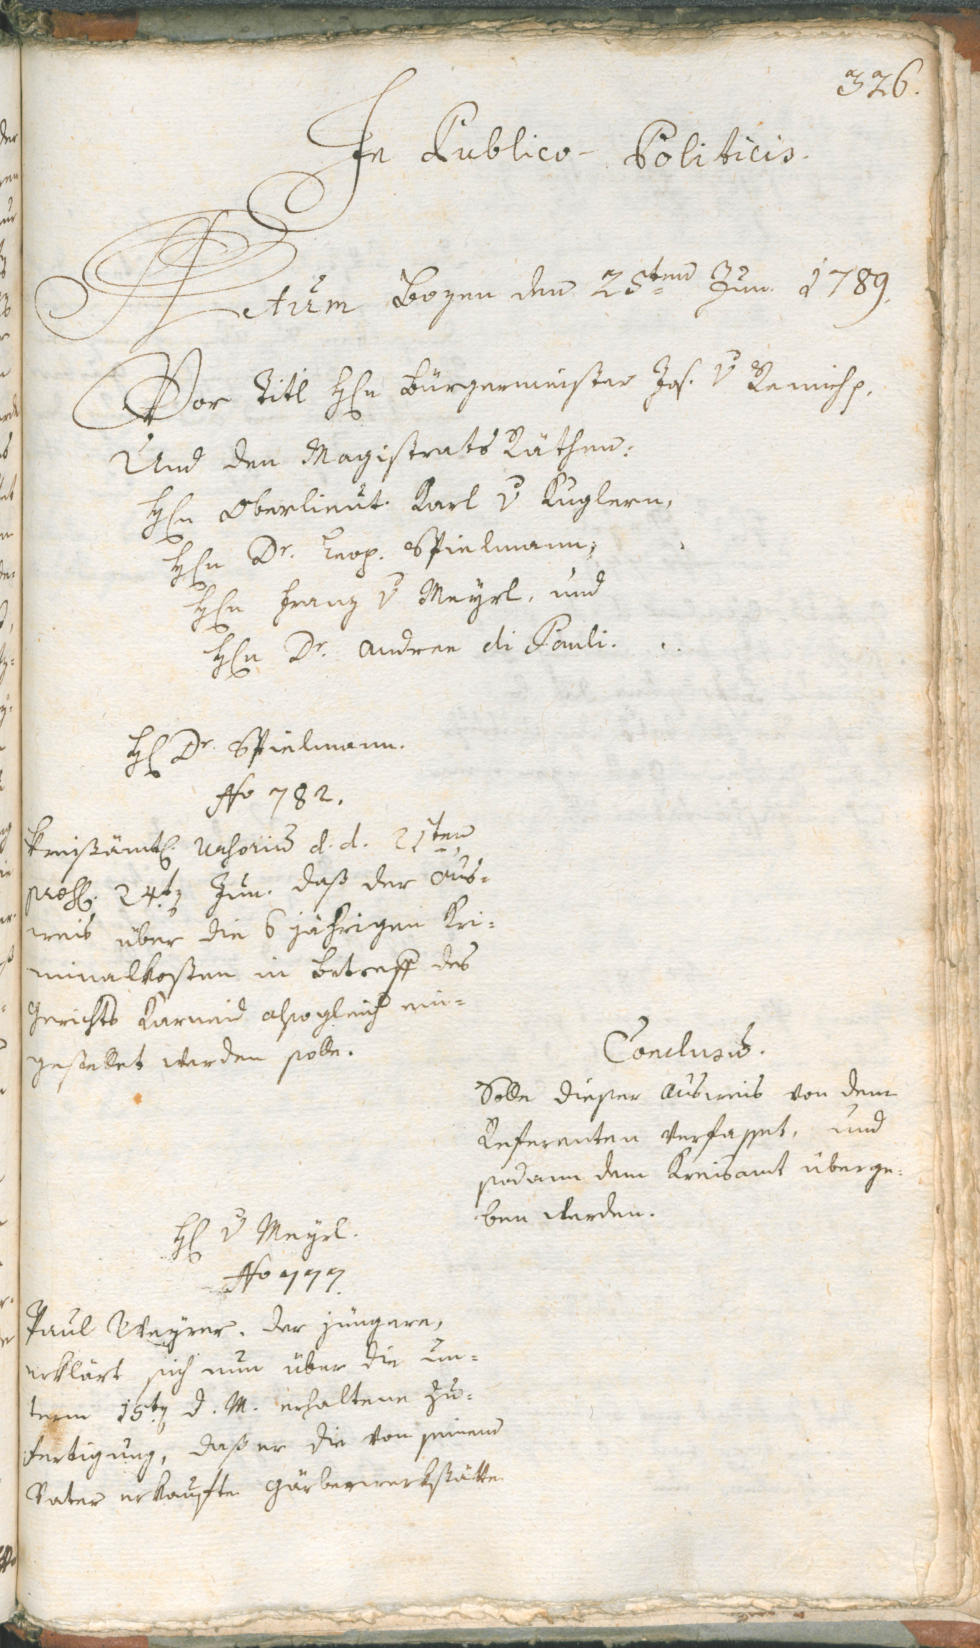 326.
In Publico-Politicis.
Actum Bozen den 28ten Jun. 1789.
Vor Titl Hℓn Bürgermeister Jos. v Remich p.
Und den Magistrats Räthen:
Hℓn Oberlieut. Karl v Kuglern,
Hℓn Dr. Leop. Spielmann,
Hℓn Franz v Meyrl, und
Hℓn Dr. Andree di Pauli.
Hℓ Dr. Spielmann.
No 782.
Kreisämtl. d. d. 21ten
24t Jun. daß der Aus-
weis über die 6 jährigen Kri-
minalkosten in Betreff des
Gerichts Karneid alsogleich ein-
gestellet werden solle.
Conclusum.
Solle dieser Ausweis von dem
Referenten verfasset, und
sodann dem Kreisamt überge-
ben werden.
Hℓ v Meyrl.
No 777.
Paul Weyrer, der jüngere,
erklärt sich nun über die un-
term 15t d. M. erhaltene Zu-
fertigung, daß er die von seinem
Vater erkaufte Gärberwerkstätte